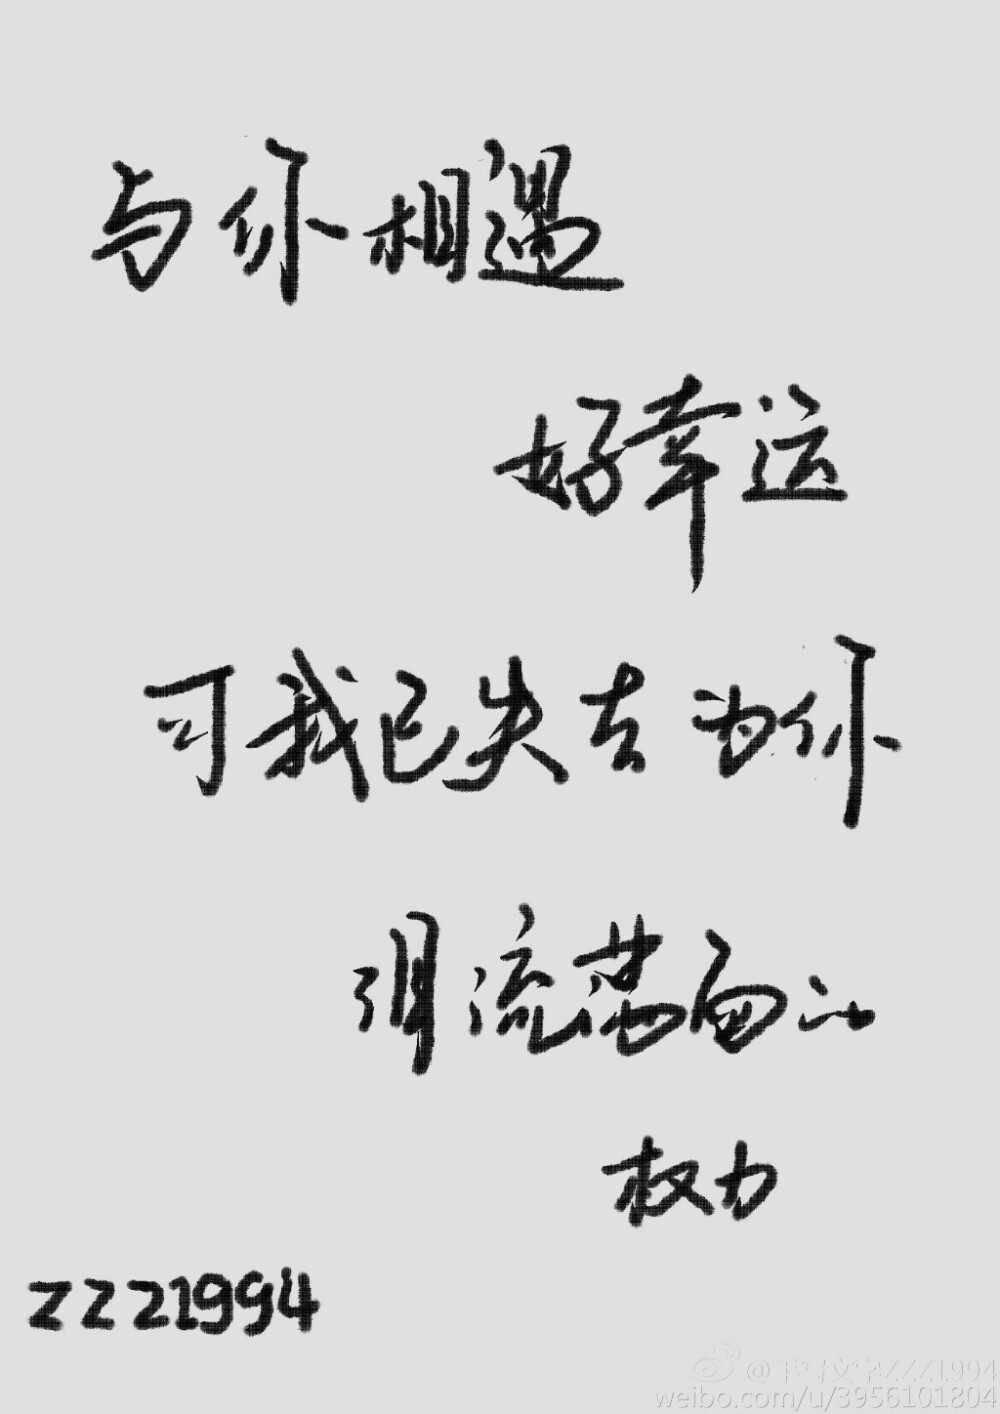 与你相遇
好幸运
可我已失去为你
泪流满面的
权力
ZZZ1994
@手写文字ZZZ1994
weibo.com/u/3956101804